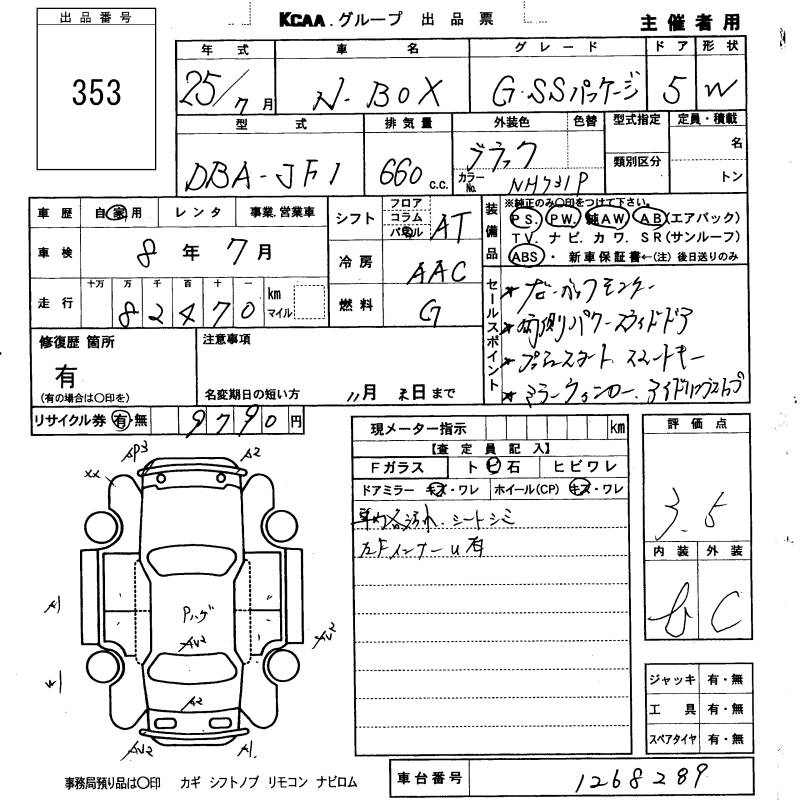 出品番号
353
KCAA.グループ 出品票
主催者用
年式 車名 グレード ドア 形状
25/7月 N-BOX G・SSパッケージ 5 W
型式 排気量 外装色 色替 型式指定 定員・積載
DBA-JF1 660c.c. ブラック 名
カラーNo. NH731P 類別区分 トン
車歴 自家用 レンタ 事業.営業車
車検 8年7月
走行 十万 万 千 百 十 一 km マイル
82470
シフト フロア コラム パネル AT
冷房 AAC
燃料 G
装備品
※純正のみ○印をつけて下さい。
PS. PW. 純AW. AB(エアバック)
TV. ナビ. カワ. SR(サンルーフ)
ABS・新車保証書←(注)後日送りのみ
セールスポイント
*両側パワースライドドア
*プッシュスタート スマートキー
*ミラーウィンカー.アイドリングストップ
修復歴 箇所
有
(有の場合は○印を)
注意事項
名変期日の短い方 11月 日まで
リサイクル券 有・無 9790円
現メーター指示 km
【査定員記入】
Fガラス トビ石 ヒビワレ
ドアミラー キズ・ワレ ホイール(CP) キズ・ワレ
車内各汚れ.シートシミ
左Fインナーu有
評価点
3.5
内装 外装
b C
ジャッキ 有・無
工具 有・無
スペアタイヤ 有・無
AP3 A2
xx
A1
Pハゲ
AU2 AU2
W1
A2
AU2 A1
事務局預り品は○印 カギ シフトノブ リモコン ナビロム
車台番号 1268289